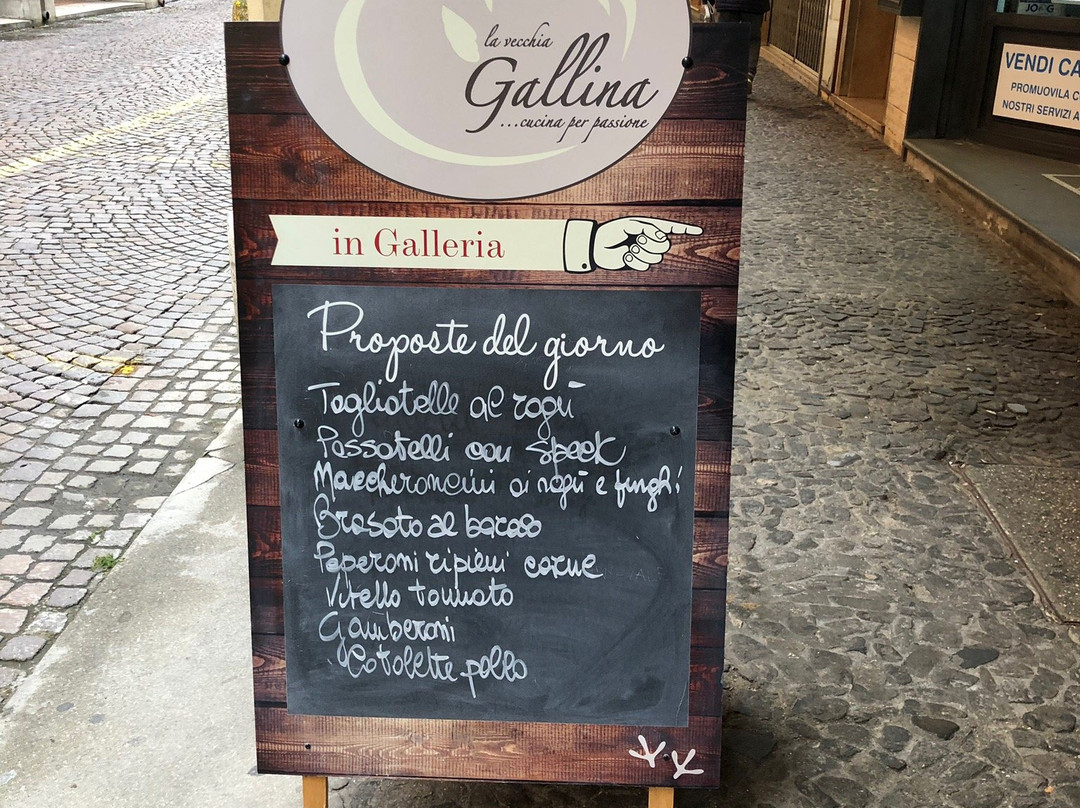 la vecchia
Gallina
...cucina per passione
in Galleria
Proposte del giorno
Tagliatelle al ragù
Passatelli con speck
Maccheroncini ai ragù e funghi
Brasato al barolo
Peperoni ripieni carne
Vitello tonnato
Gamberoni
Cotolette pollo
VENDI CA
PROMUOVILA C
NOSTRI SERVIZI A